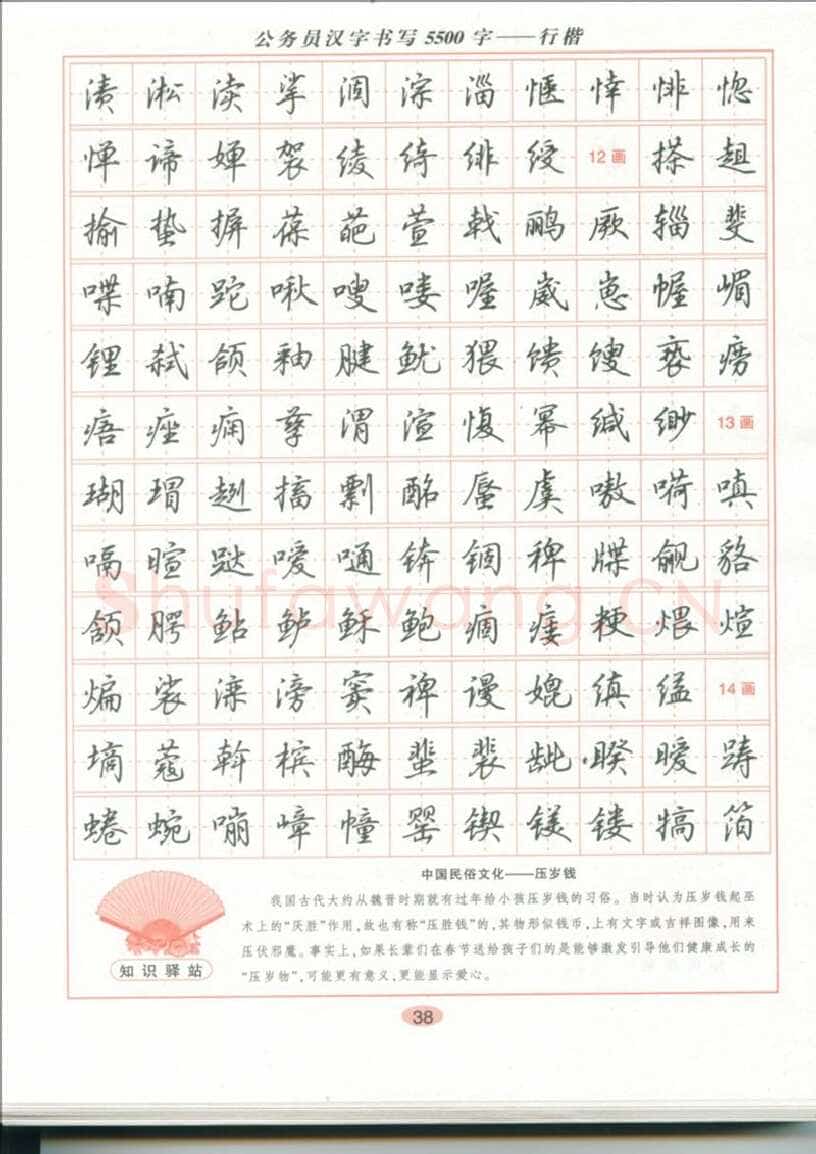 公务员汉字书写5500字——行楷
渍 淞 渎 挲 涸 淙 淄 惬 悻 悱 惚
惮 谛 婵 袈 绫 绮 绯 绶 12画 搽 趄
揄 蛰 摒 葆 葩 萱 戟 鹂 厥 辎 斐
喋 喃 跎 啾 嗖 喽 喔 崴 崽 幄 嵋
锂 弑 颌 釉 腱 鱿 猥 馈 馊 亵 痨
痦 痤 痫 孳 渭 渲 愎 幂 缄 缈 13画
瑚 瑁 趔 搐 剽 酩 蜃 虞 嗷 嗬 嗔
嗝 暄 跶 嗳 嗵 锛 锢 稗 牒 觎 貉
颔 腭 鲇 鲈 稣 鲍 痼 瘘 粳 煨 煊
煸 裟 溱 滂 窦 裨 谩 媲 缜 缢 14画
墒 蔻 斡 槟 酶 蜚 裴 龇 暌 暧 踌
蜷 蜿 嘣 嶂 幢 罂 锲 镁 镂 犒 箔
Shufawang.CN
中国民俗文化——压岁钱
我国古代大约从魏晋时期就有过年给小孩压岁钱的习俗。当时认为压岁钱起巫
术上的“厌胜”作用,故也有称“压胜钱”的,其物形似钱币,上有文字或吉祥图像,用来
压伏邪魔。事实上,如果长辈们在春节送给孩子们的是能够激发引导他们健康成长的
“压岁物”,可能更有意义,更能显示爱心。
知识驿站
38